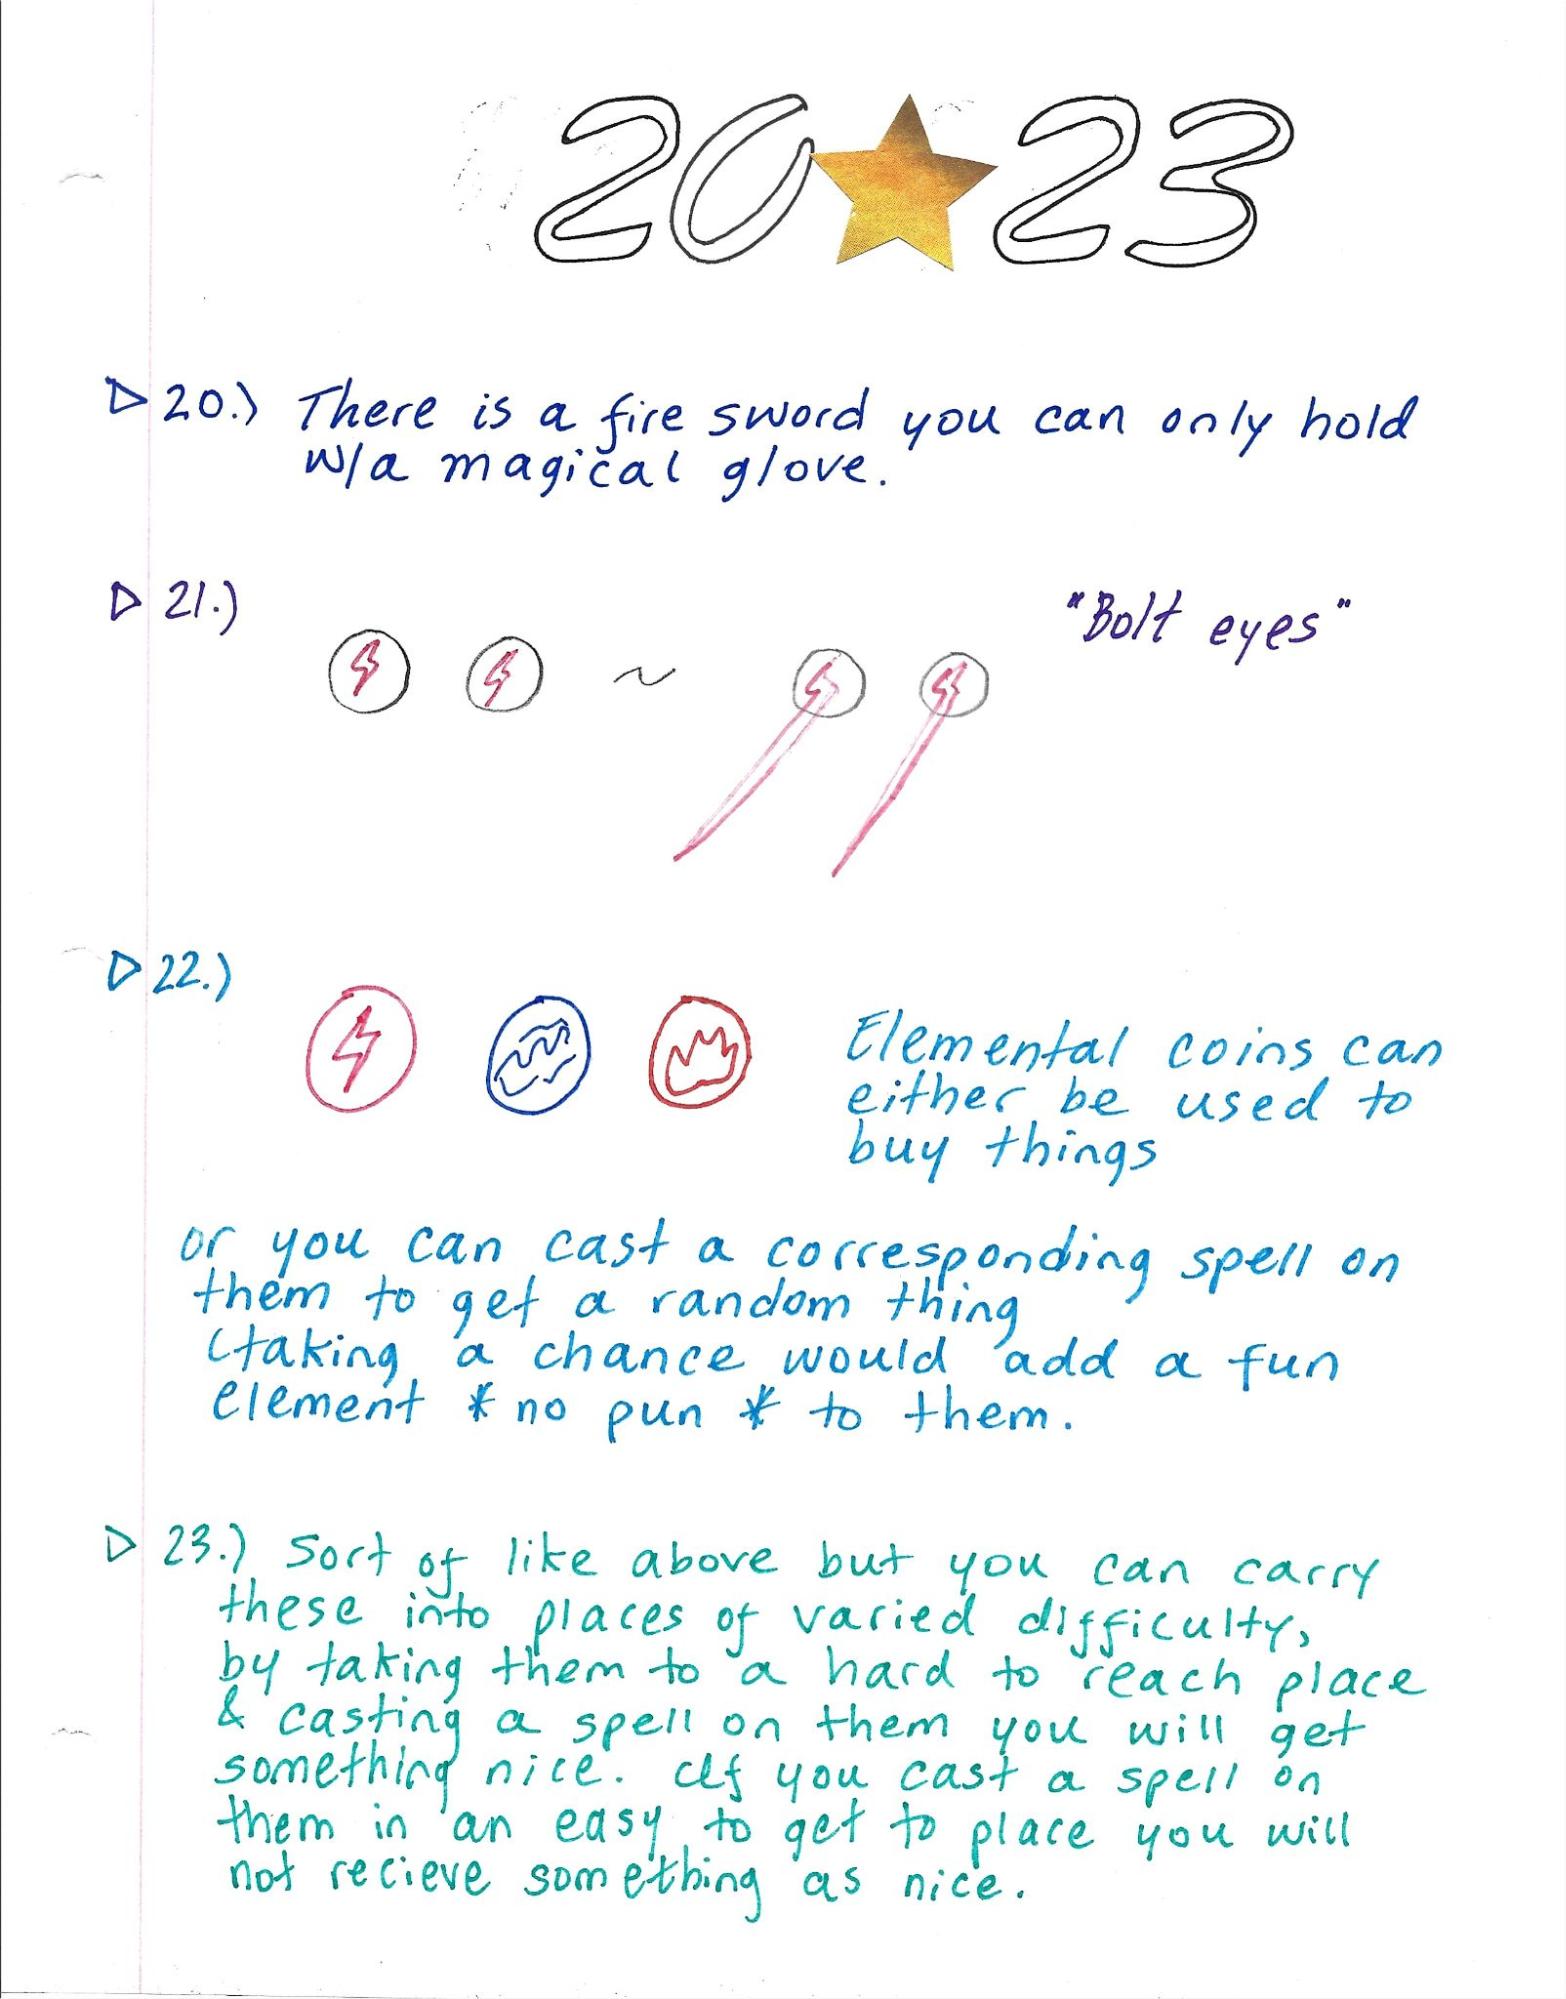 20 23
20.) There is a fire sword you can only hold
w/a magical glove.
21.)
"Bolt eyes"
~
22.)
Elemental coins can
either be used to
buy things
or you can cast a corresponding spell on
them to get a random thing
(taking a chance would add a fun
element *no pun* to them.
23.) Sort of like above but you can carry
these into places of varied difficulty,
by taking them to a hard to reach place
& casting a spell on them you will get
something nice. If you cast a spell on
them in an easy to get to place you will
not recieve something as nice.